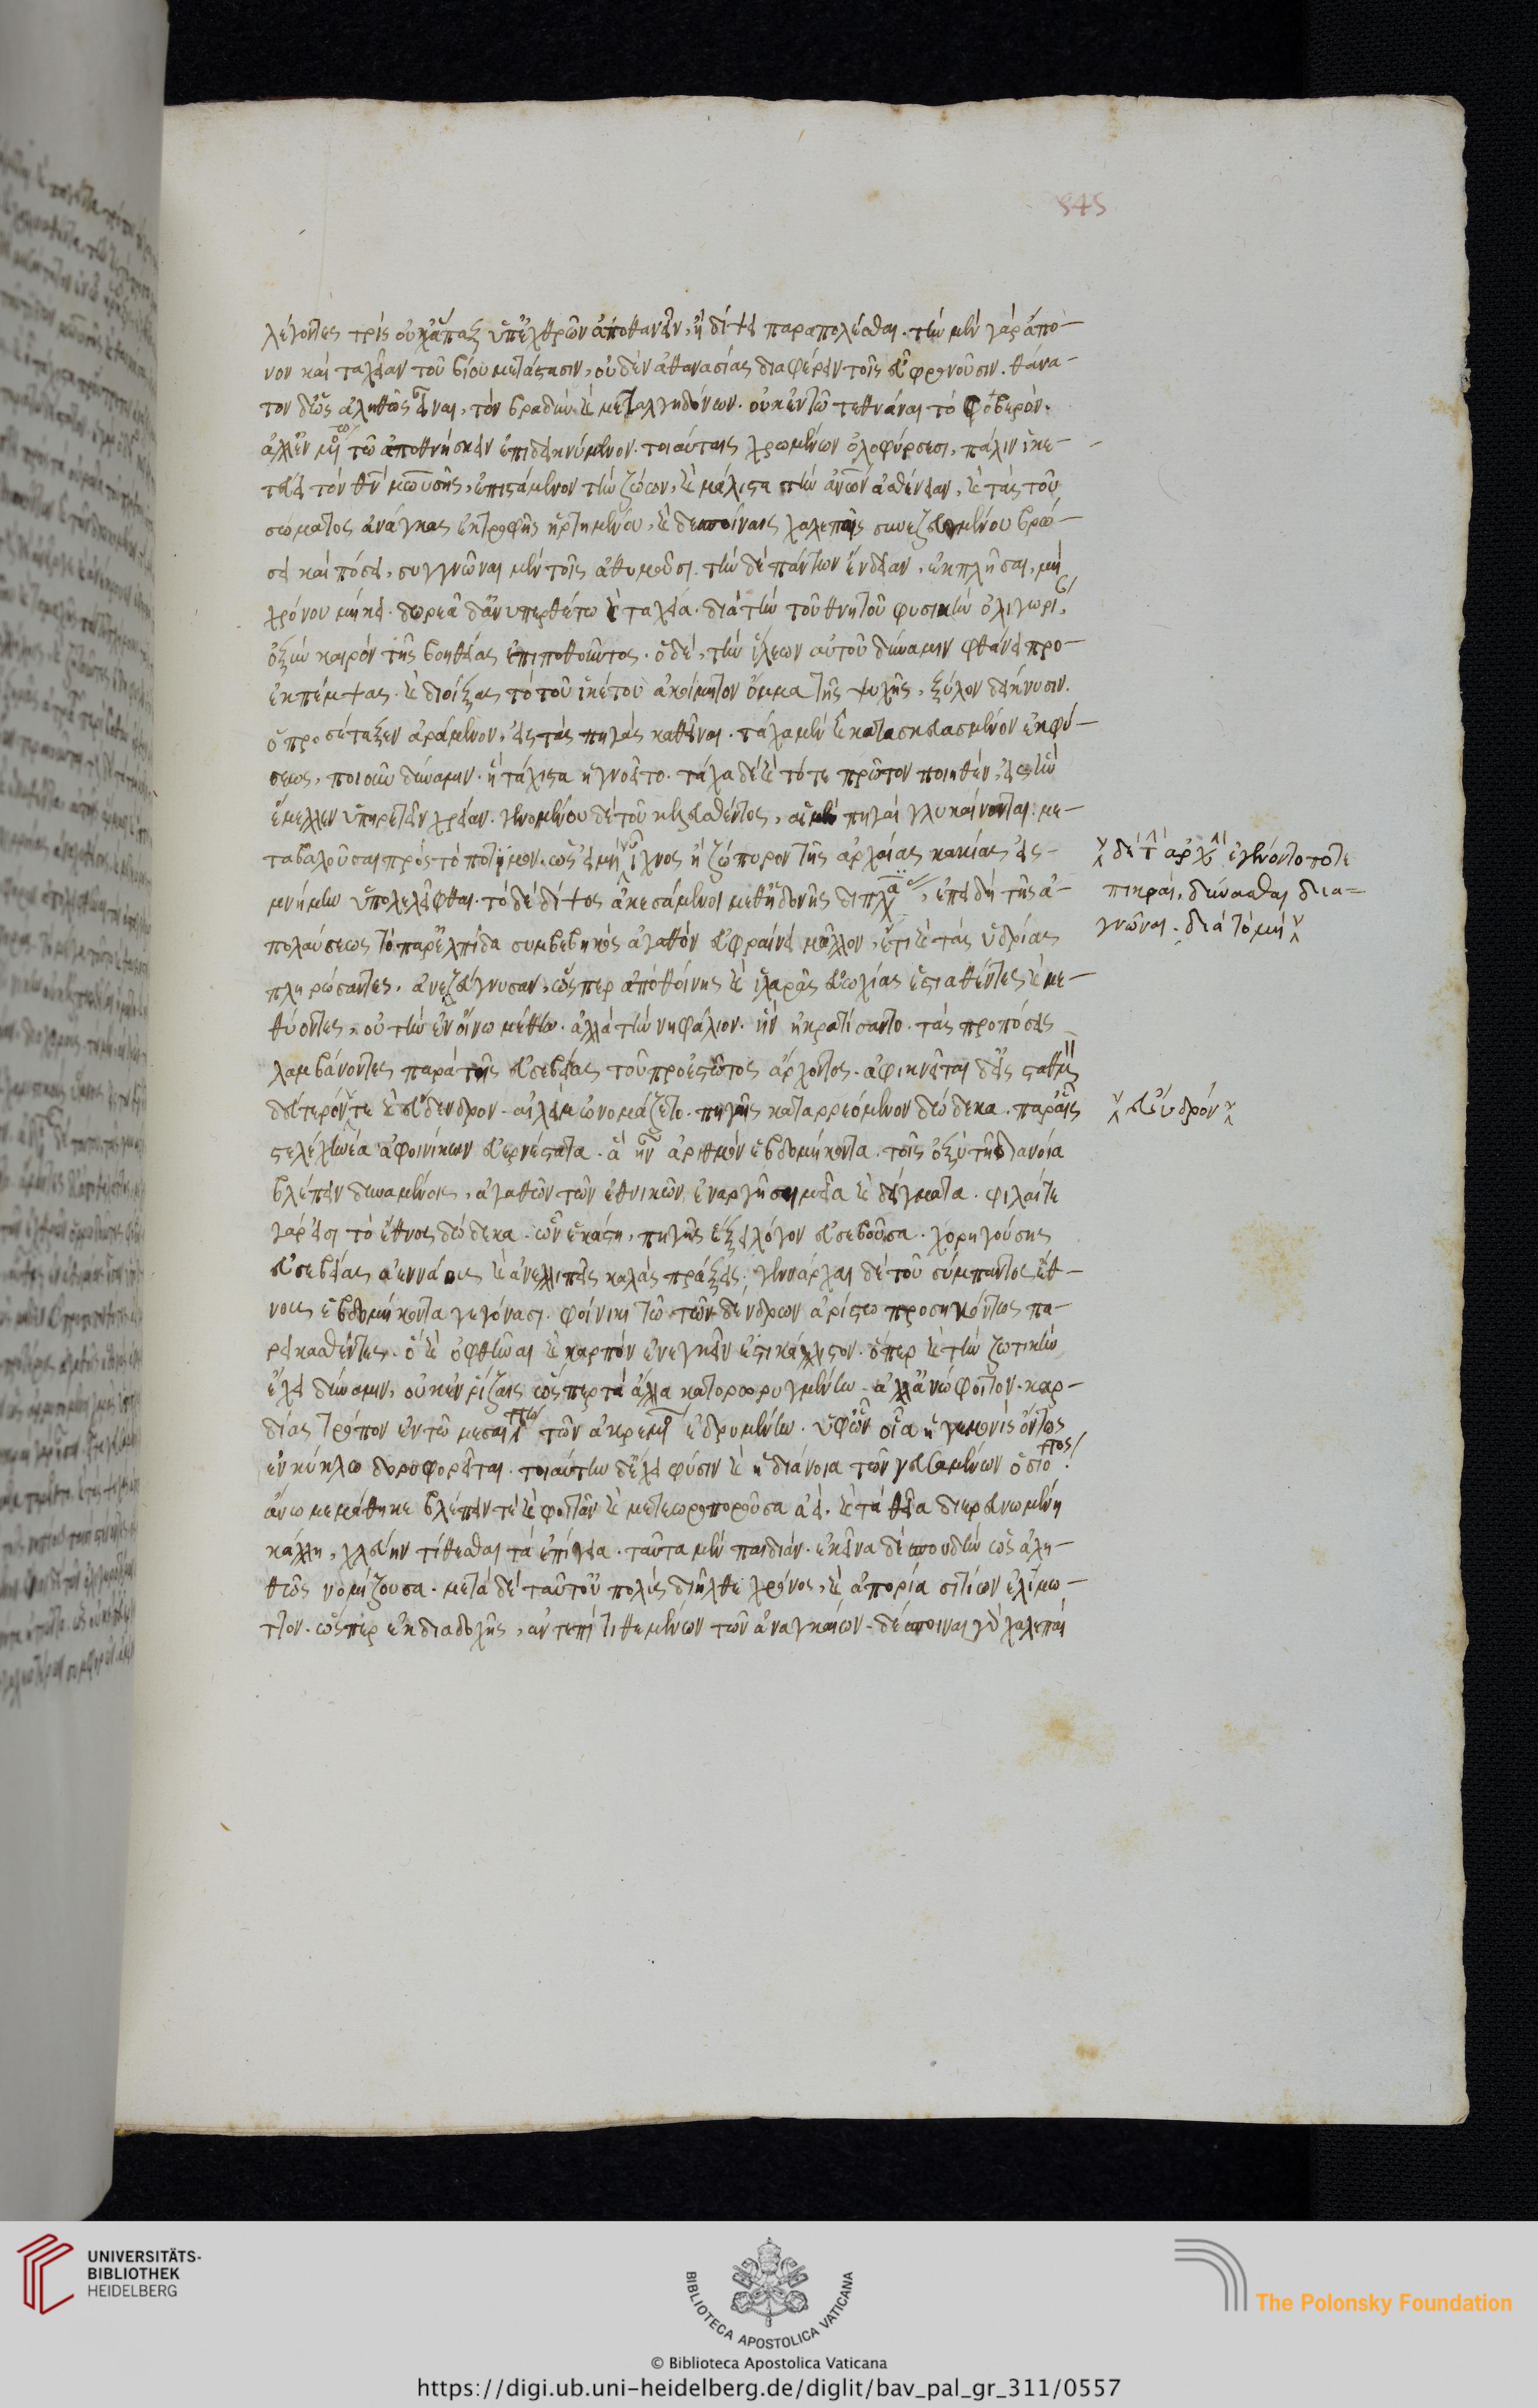 545
λέγοντες τρὶς οὐχ ἅπαξ ὑπ' ἐχθρῶν ἀποθανεῖν, ἢ δίψει παραπολέσθαι. τὴν μὲν γὰρ ἄπο-
νον καὶ ταχεῖαν τοῦ βίου μετάστασιν, οὐδὲν ἀθανασίας διαφέρειν τοῖς εὖ φρονοῦσιν. θάνα-
τον δ' ὡς ἀληθῶς εἶναι, τὸν βραδὺν καὶ μετ' ἀλγηδόνων. οὐκ ἐν τῷ τεθνάναι τὸ φοβερὸν.
ἀλλ' ἐν μόνῳ τῷ ἀποθνήσκειν ἐπιδεικνύμενον. τοιαύταις χρωμένων ὀλοφύρσεσι, πάλιν ἱκε-
τεύει τὸν θν μωυσῆς, ἐπιστάμενον τὴν ζώων, καὶ μάλιστα τὴν ἀνων ἀσθένειαν, καὶ τὰς τοῦ
σώματος ἀνάγκας ἐκ τροφῆς ἠρτημένου, καὶ δεσποίναις χαλεπαῖς συνεζευγμένου βρώ-
σει καὶ πόσει, συγγνῶναι μὲν τοῖς ἀθυμοῦσι. τὴν δὲ πάντων ἔνδειαν, ἐκπλῆσαι, μὴ
χρόνου μήκει. δωρεᾷ δ' ἀνυπερθέτω καὶ ταχείᾳ. διὰ τὴν τοῦ θνητοῦ φυσικὴν ὀλιγωρί,
ὀξὺν καιρὸν τῆς βοηθείας ἐπιποθοῦντος. ὁ δὲ, τὴν ἵλεων αὐτοῦ δύναμιν φθάνει προ-
εκπέμψας. καὶ διοίξας τὸ τοῦ ἱκέτου ἀκοίμητον ὄμμα τῆς ψυχῆς, ξύλον δείκνυσιν.
ὃ προσέταξεν ἀράμενον, εἰς τὰς πηγὰς καθεῖναι. τάχα μὲν καὶ κατασκευασμένον ἐκ φύ-
σεως, ποιοῦν δύναμιν. ἣ τάχιστα ἠγνοεῖτο. τάχα δὲ καὶ τότε πρῶτον ποιηθὲν, εἰς ἣν
ἔμελλεν ὑπηρετεῖν χρείαν. γενομένου δὲ τοῦ κελευσθέντος, αἱ μὲν πηγαὶ γλυκαίνονται. με-
ταβαλοῦσαι πρὸς τὸ πότιμον. ὡς εἰ μηδ' ἴχνος ἢ ζώπυρον τῆς ἀρχαίας κακίας εἰς
μνήμην ὑπολελεῖφθαι. τὸ δὲ δίψος ἀκεσάμενοι μεθ' ἡδονῆς διπλα, ἐπειδὴ τῆς ἀ-
πολαύσεως τὸ παρ' ἐλπίδα συμβεβηκὸς ἀγαθὸν εὐφραίνει μᾶλλον, ἔτι καὶ τὰς ὑδρίας
πληρώσαντες, ἀνεζεύγνυσαν, ὥσπερ ἀπὸ θοίνης καὶ ἱλαρᾶς εὐωχίας ἑστιαθέντες καὶ με-
θύοντες, οὐ τὴν ἐν οἴνω μέθην. ἀλλὰ τὴν νηφάλιον. ἣν ἠκρατίσαντο. τὰς προπόσεις
λαμβάνοντες παρὰ τῆς εὐσεβείας τοῦ προεστῶτος ἄρχοντος. ἀφικνεῖται δ' εἰς σταθμ
δεύτερόν τε καὶ εὔδενδρον. αἰλεὶμ ὠνομάζετο. πηγαῖς καταρρεόμενον δώδεκα. παρ' αἷς
στελέχη νέα φοινίκων εὐερνέστατα. ἃ ἦν ἀριθμὸν ἑβδομήκοντα. τοῖς ὀξὺ τῇ διανοίᾳ
βλέπειν δυναμένοις, ἀγαθῶν τῶν ἐθνικῶν ἐναργῆ σημεῖα καὶ δείγματα. φυλαί τε
γάρ εἰσι τὸ ἔθνος δώδεκα. ὧν ἑκάστη, πηγῆς ἕξει λόγον εὐσεβοῦσα. χορηγούσης
εὐσεβείας ἀεννάους καὶ ἀνελλιπεῖς καλὰς πράξεις. γενάρχαι δὲ τοῦ σύμπαντος ἔθ-
νους ἑβδομήκοντα γεγόνασι. φοίνικι τῷ τῶν δένδρων ἀρίστω προσηκόντως πα-
ρεικασθέντες. ὃ καὶ ὀφθῆναι καὶ καρπὸν ἐνεγκεῖν ἐστι κάλλιστον. ὅπερ καὶ τὴν ζωτικὴν
ἔχει δύναμιν, οὐκ ἐν ῥίζαις ὥσπερ τὰ ἄλλα κατορωρυγμένην. ἀλλ' ἀνώφοιτον. καρ-
δίας τρόπον ἐν τῷ μεσαιτάτω τῶν ἀκρεμόνων ἱδρυμένην. ὑφ' ὧν οἷα ἡγεμονὶς ὄντως
ἐν κύκλω δορυφορεῖται. τοιαύτην δ' ἔχει φύσιν καὶ ἡ διάνοια τῶν γευσαμένων ὁσιότητος.
ἄνω μεμάθηκε βλέπειν τὲ καὶ φοιτᾶν καὶ μετεωροποροῦσα ἀεὶ. καὶ τὰ θεῖα διερευνωμένη
κάλλη, χλεύην τίθεσθαι τὰ ἐπίγεια. ταῦτα μὲν παιδιάν. ἐκεῖνα δὲ σπουδὴν ὡς ἀλη-
θῶς νομίζουσα. μετὰ δὲ ταῦτ' οὐ πολὺς διῆλθε χρόνος, καὶ ἀπορία σιτίων ἐλίμω-
τον. ὥσπερ ἐκ διαδοχῆς, ἀντεπιτιθεμένων τῶν ἀναγκαίων. δέσποιναι γὰρ χαλεπαὶ
ἐγένοντο τότε
πικραί, δύνασθαι δια=
γνῶναι. διὰ τὸ μὴ
εὔυδρόν
UNIVERSITÄTS-
BIBLIOTHEK
HEIDELBERG
BIBLIOTECA APOSTOLICA VATICANA
© Biblioteca Apostolica Vaticana
The Polonsky Foundation
https://digi.ub.uni-heidelberg.de/diglit/bav_pal_gr_311/0557